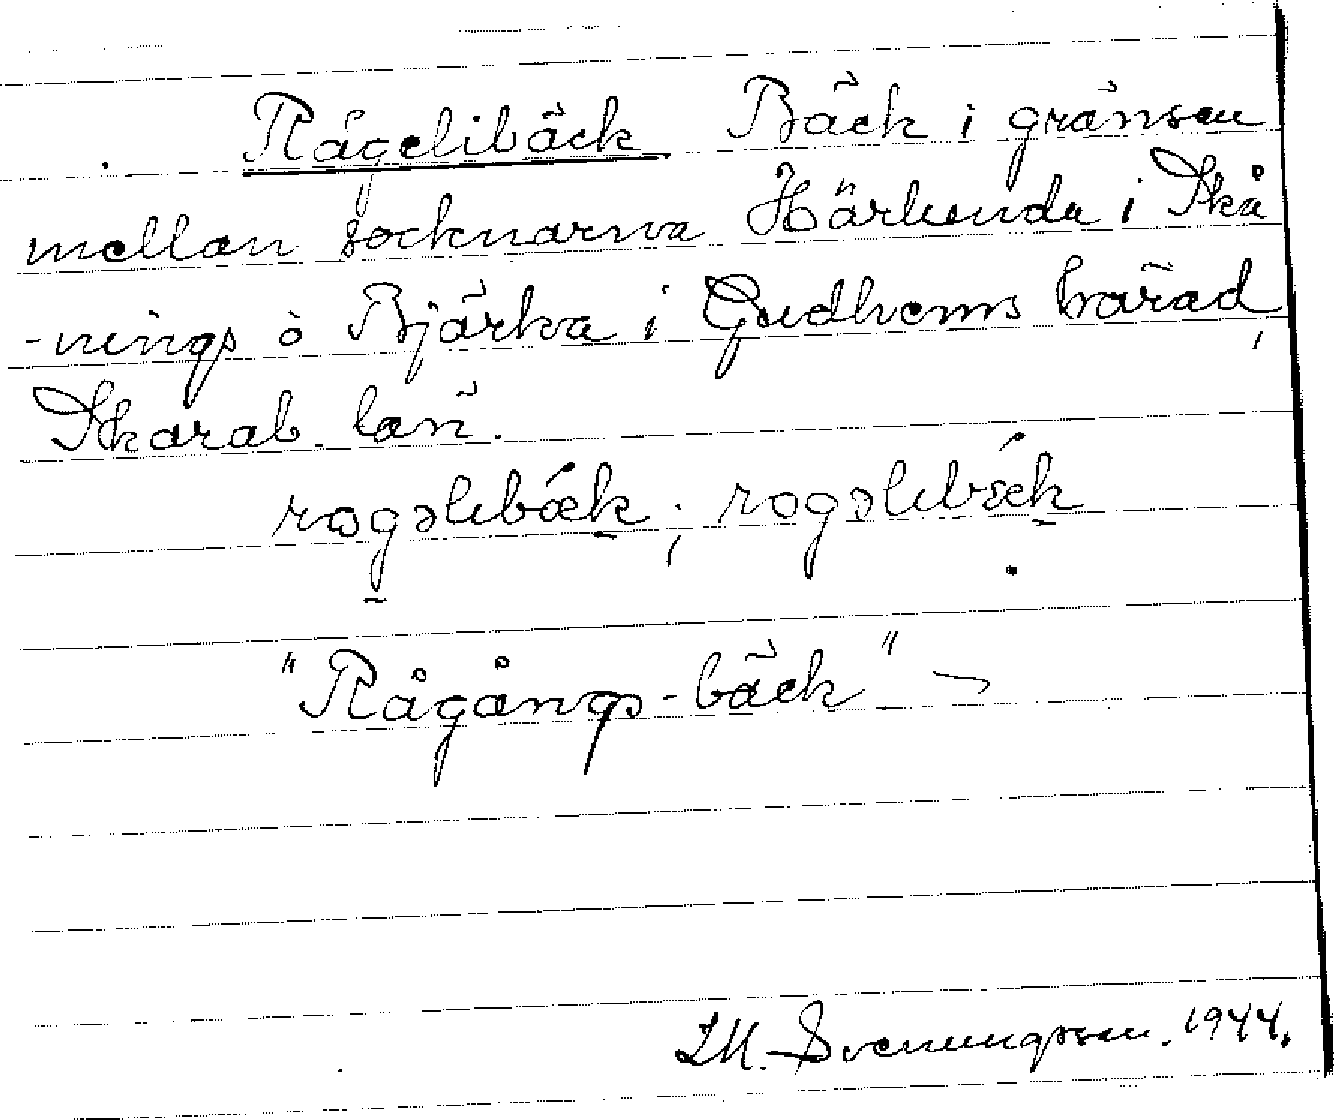 Rågelibäck Bäck i gränsen
mellan socknarna Härlunda i Skå
-nings o Bjärka i Gudhems härad,
Skarab. län.
rogəlebæk; rogəlebæk
"Rågångs-bäck"
Svenungsson. 1944.